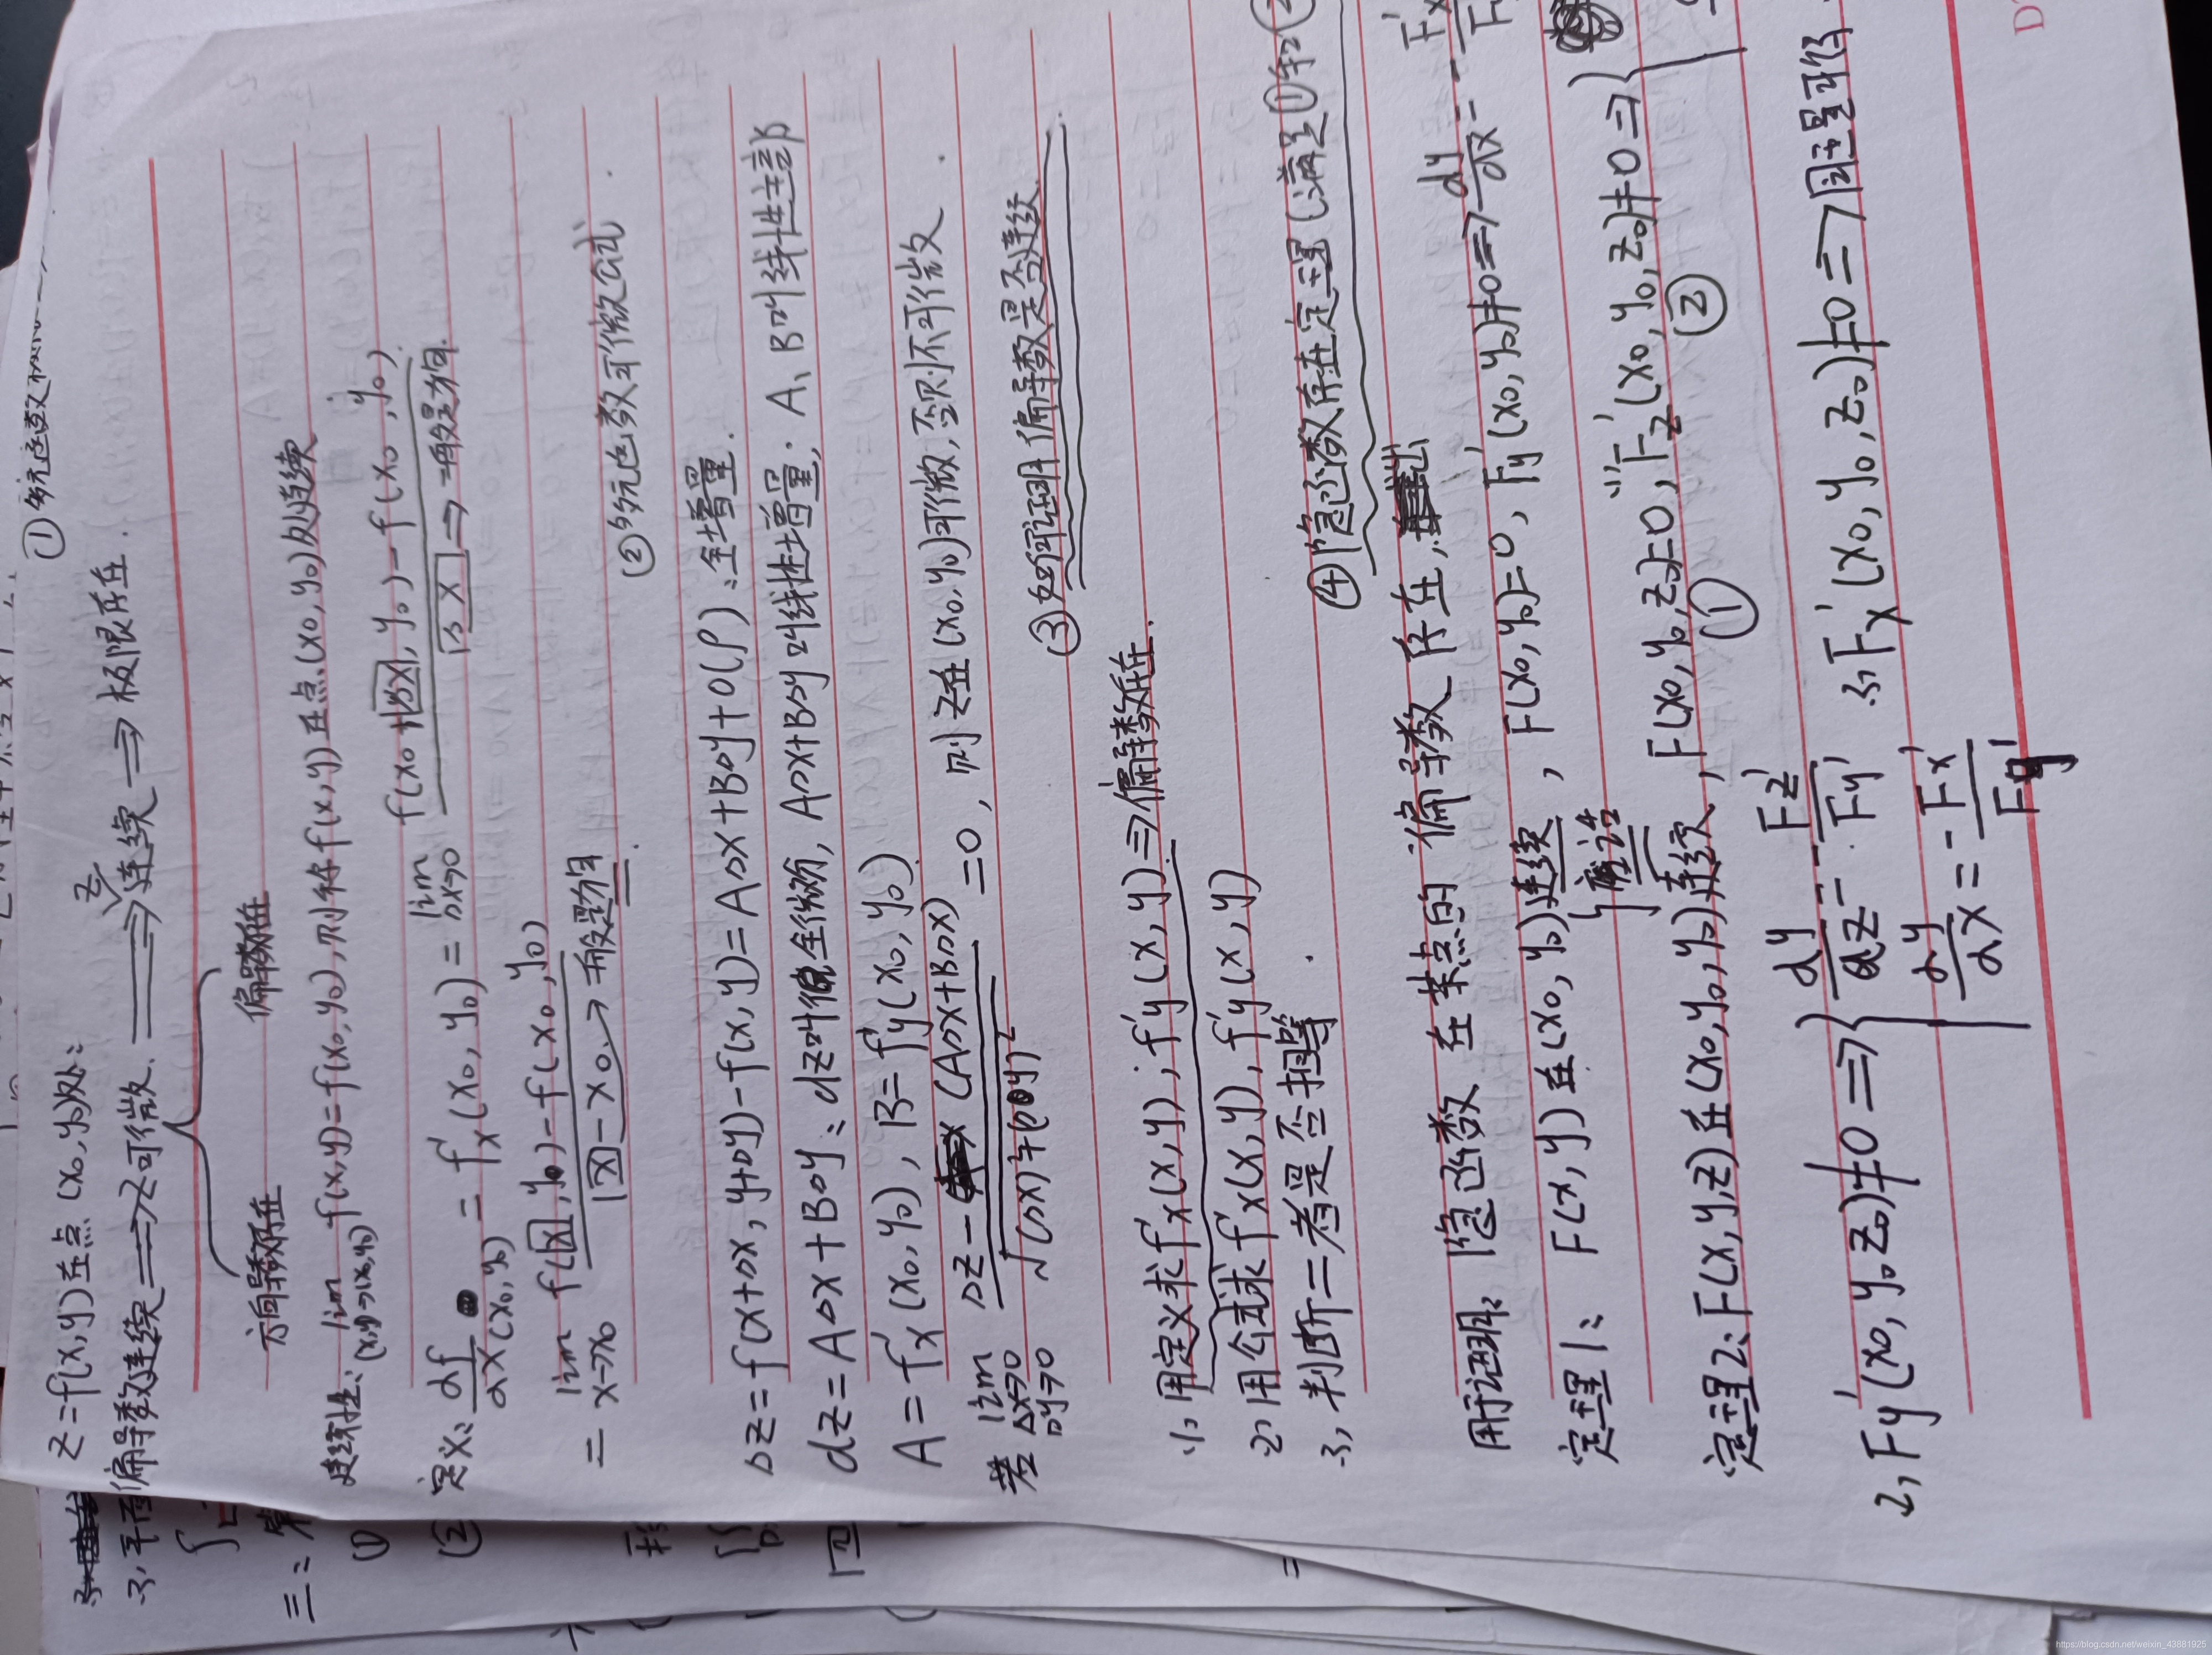 ① 多元函数
z=f(x,y)在点(x₀,y₀)处:
偏导数连续⟹z可微⟹z连续⟹极限存在.
方向导数存在 偏导数存在
连续性: lim (x,y)→(x₀,y₀) f(x,y)=f(x₀,y₀),则称f(x,y)在点(x₀,y₀)处连续
定义: ∂f/∂x (x₀,y₀) = f'x(x₀,y₀)= lim Δx→0 [f(x₀+Δx,y₀)-f(x₀,y₀)]/Δx ⟹
= lim x→x₀ [f(x,y₀)-f(x₀,y₀)]/(x-x₀) →
②多元函数可微(公式)
Δz=f(x+Δx,y+Δy)-f(x,y)=AΔx+BΔy+o(ρ):全增量.
dz=AΔx+BΔy: dz叫全微分,AΔx+BΔy叫线性增量; A、B叫线性主部
A=f'x(x₀,y₀), B=f'y(x₀,y₀).
若 lim Δx→0 Δy→0 [Δz-(AΔx+BΔx)]/√((Δx)²+(Δy)²) =0,则z在(x₀,y₀)可微,否则不可微.
③如何证明偏导数是否连续
1,用定义求f'x(x,y),f'y(x,y)⟹偏导数存在.
2,用公式求f'x(x,y),f'y(x,y)
3,判断二者是否相等.
④隐函数存在定理(满足①与②
用于证明:隐函数在某点的偏导数存在,
定理1: F(x,y)在(x₀,y₀)连续, F(x₀,y₀)=0, F'y(x₀,y₀)≠0⟹dy/dx=-F'x/F
定理2:F(x,y,z)在(x₀,y₀,y₀)连续, F(x₀,y₀,z₀)=0, 1,F'z(x₀,y₀,z₀)≠0⟹
① ②
2,F'y(x₀,y₀,z₀)≠0⟹{ ∂y/∂z=-Fz'/Fy' 3,F'x(x₀,y₀,z₀)≠0⟹同理可得
∂y/∂x=-Fx'/Fy'
https://blog.csdn.net/weixin_43881925